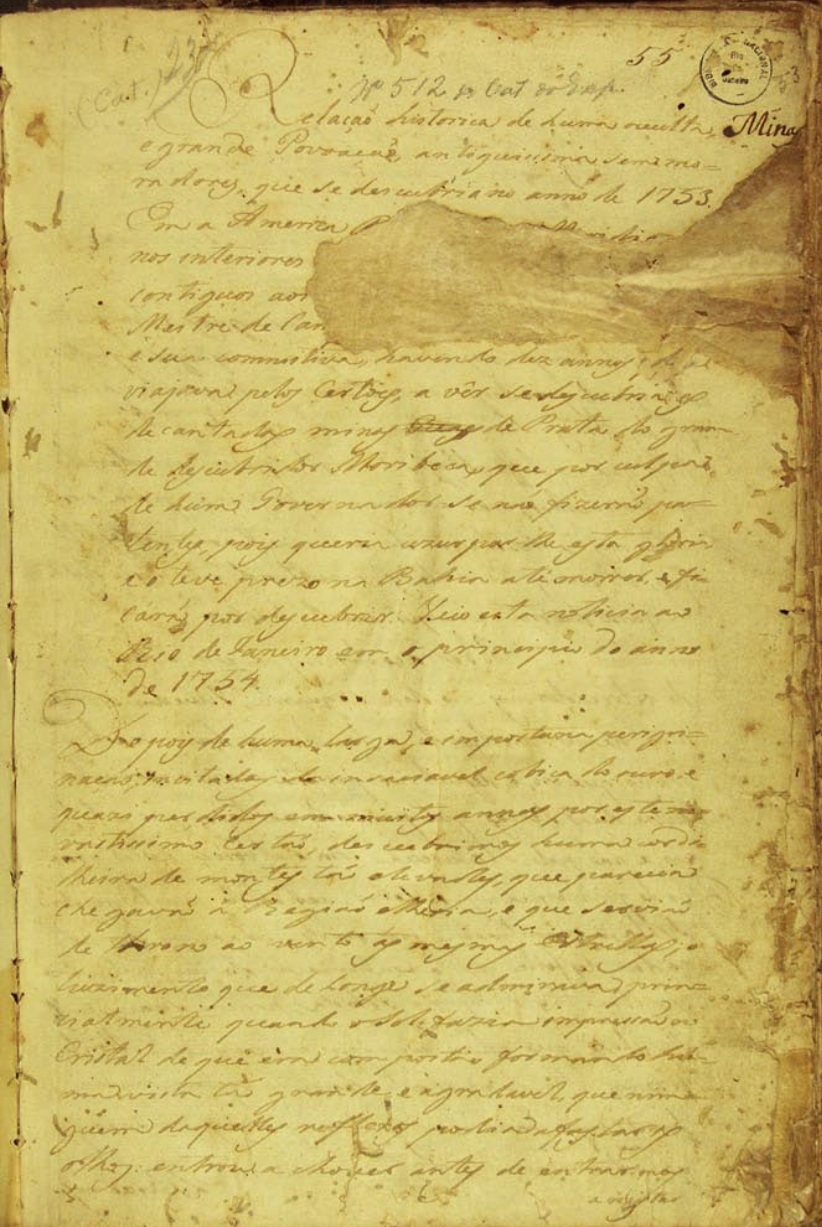 (Cat. 23
55
BIBLIOTHECA NACIONAL
Rio
de
Janeiro
53
Nº 512 do Cat do Exp.
Relaçaõ historica de huma occulta, Minas
e grande Povoaçaõ, antiquissima sem mo-
radores, que se descubriu no anno de 1753.
Em a America
nos interiores
contiguos aos
Mestre de Can
e sua commitiva, havendo dez annos,
viajava pelos Certoẽs, a vêr se descubria os
decantadas minas de Prata do gran
de descubridor Moribeca, que por culpa
de hum Governador se naõ fizeraõ pa-
tentes, pois queria uzurparlhe esta gloria
e o teve prezo na Bahia até morrer, e fi
caraõ por descubrir. Veio esta noticia ao
Rio de Janeiro em o principio do anno
de 1754.
Depois de huma larga, e importuna perigri-
naçaõ, incitados da insaciavel cobiça do ouro, e
quazi perdidos em muitos annos por este
vastissimo Certaõ, descubrimos huma cordi-
lheira de montes taõ elevados, que parecia
chegavaõ á Regiaõ etheria, e que serviaõ
de throno ao vento ás mesmas Estrellas; o
luzimento que de longe se admirava, prin-
cialmente quando o Sol fazia impressaõ
Cristal de que era composta formando hu-
ma vista taõ grande e agradavel, que nin-
guem daquelles reflexos podia afastar os
olhos: entrou a chover antes de entrarmos
a registar